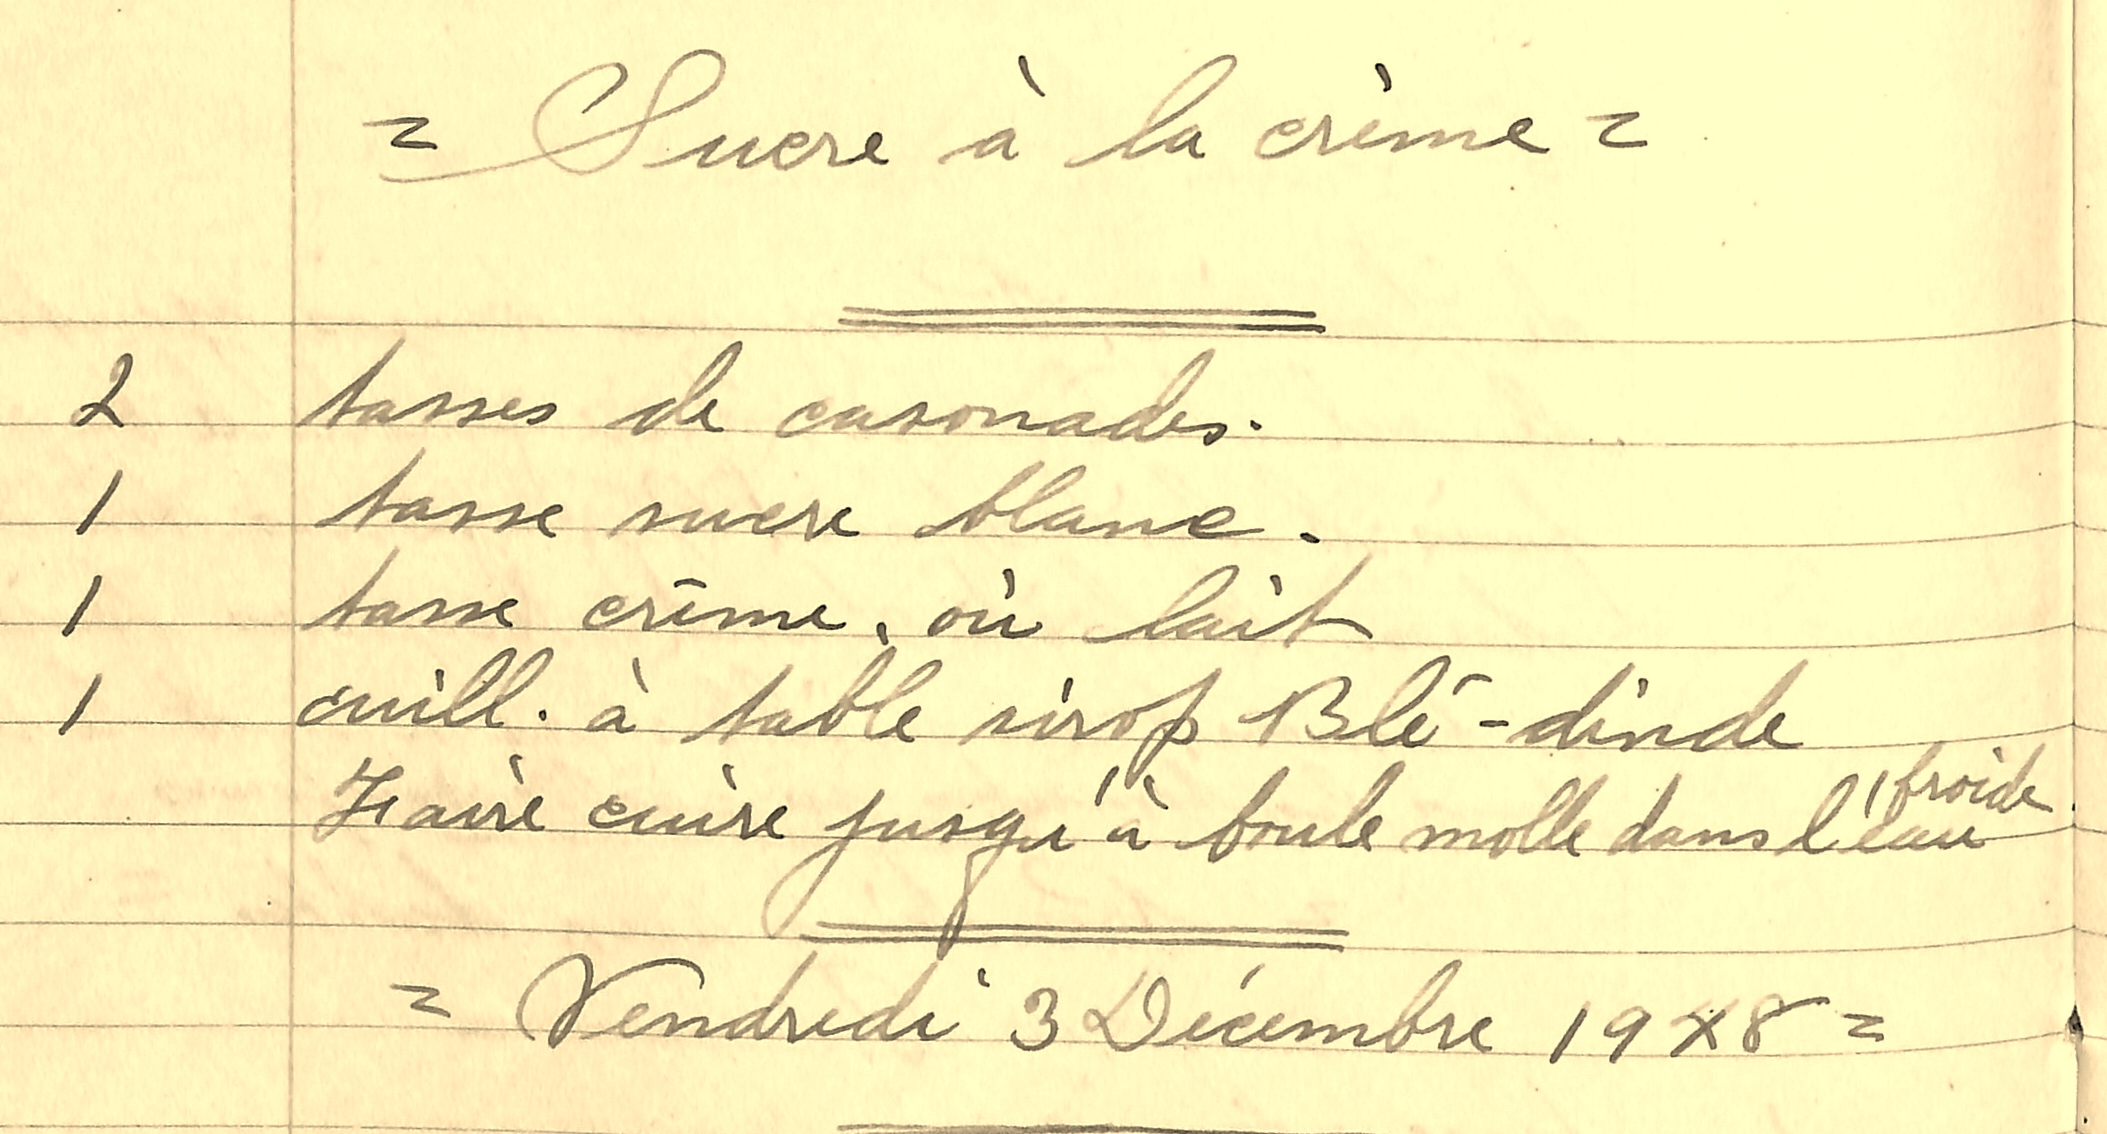 = Sucre à la crème =
2 tasses de casonades.
1 tasse sucre blanc.
1 tasse crème, où lait
1 cuill. à table sirop Blé-dinde
Faire cuire jusqu'à boule molle dans l'eau froide.
= Vendredi 3 Décembre 1948 =